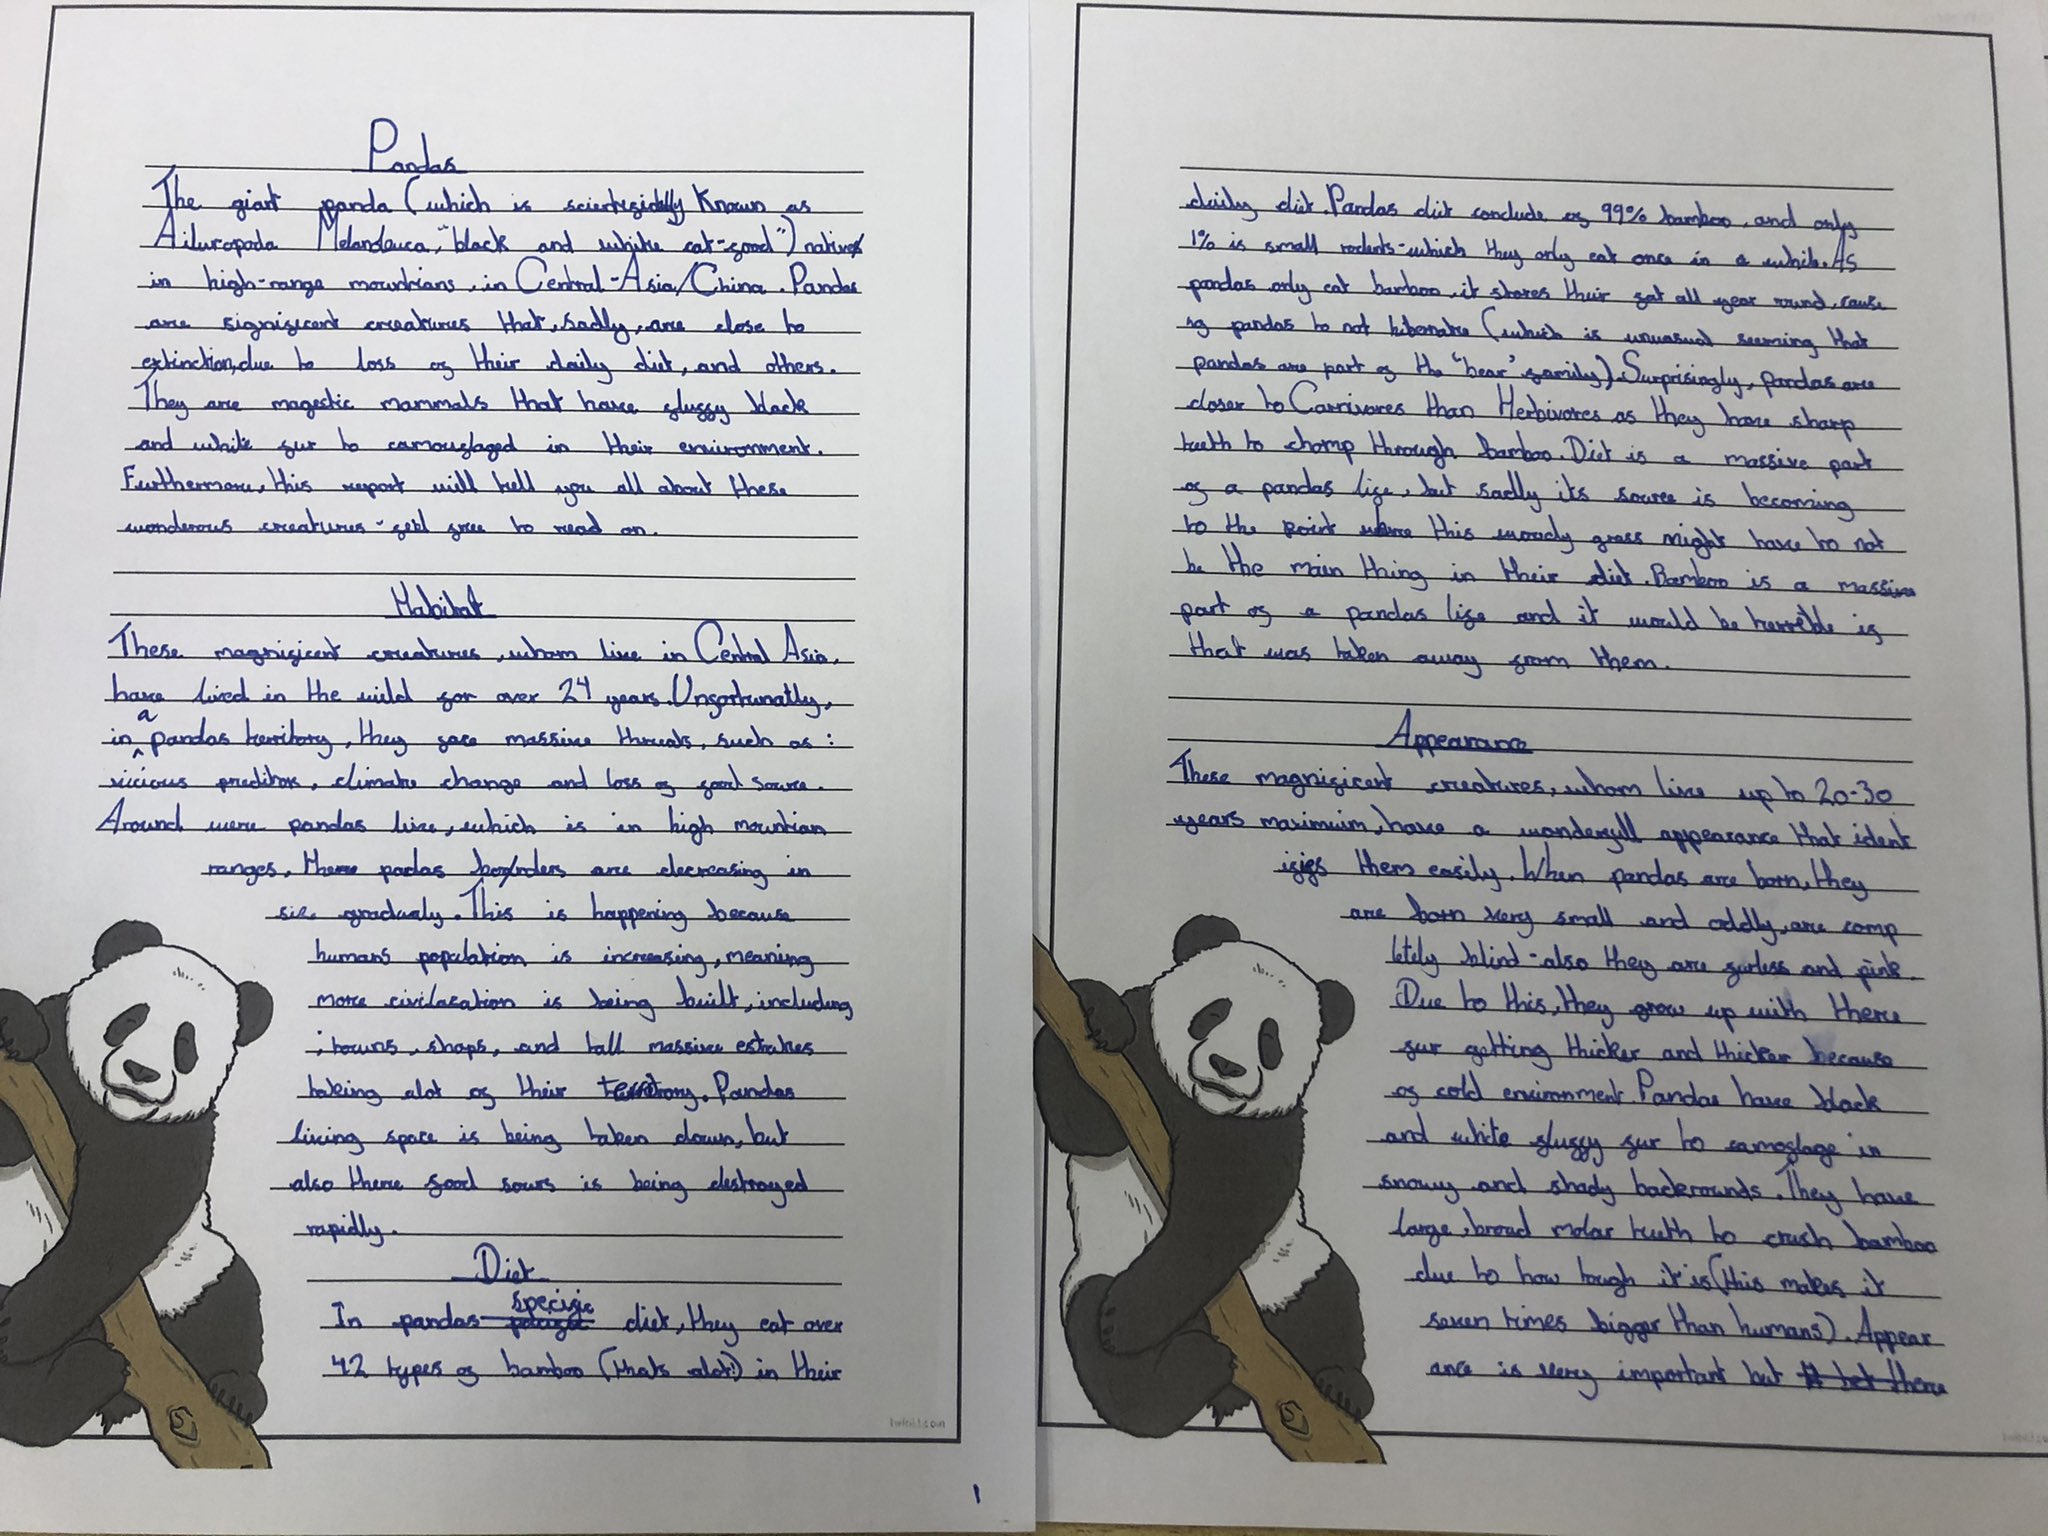 Pandas
The giant panda (which is scientifically Known as
Ailuropoda Melanoleuca, "black and white cat-food") native
in high-range mountians, in Central-Asia/China. Pandas
are significent creatures that, sadly, are close to
extinction, due to loss of their daily diet, and others.
They are magestic mammals that have fluffy black
and white fur to camouflaged in their environment.
Furthermore, this report will tell you all about these
wonderous creatures - feel free to read on.
Habitat
These magnificent creatures, whom live in Central Asia,
have lived in the wild for over 24 years. Unfortunatly,
in a pandas territory, they face massive threats, such as:
vicious preditors, climate change and loss of food source.
Around were pandas live, which is in high mountian
ranges, there padas borders are decreasing in
size gradualy. This is happening because
humans population is increasing, meaning
more civilasation is being built, including
; towns, shops, and tall massive estates
taking alot of their territory. Pandas
living space is being taken down, but
also there food sours is being destroyed
rapidly.
Diet
In pandas specific diet, they eat over
42 types of bamboo (thats alot!) in their
daily diet. Pandas diet conclude of 99% bamboo, and only
1% is small rodents - which they only eat once in a while. As
pandas only eat bamboo, it stores their fat all year round, cause
of pandas to not hibernate (which is unusual seeming that
pandas are part of the "bear" family). Surprisingly, pandas are
closer to Carnivores than Herbivores as they have sharp
teeth to chomp through bamboo. Diet is a massive part
of a pandas life, but sadly its source is becoming
to the point where this woody grass might have to not
be the main thing in their diet. Bamboo is a massive
part of a pandas life and it would be herrible if
that was taken away from them.
Appearance
These magnificent creatures, whom live up to 20-30
years maximuim, have a wonderfull appearance that ident
ifies them easily. When pandas are born, they
are born very small and oddly, are comp
letely blind - also they are furless and pink.
Due to this, they grow up with there
fur getting thicker and thicker because
of cold environment. Pandas have black
and white fluffy fur to camoflage in
snowy and shady backrounds. They have
large, broad molar teeth to crush bamboo
due to how tough it is (this makes it
seven times bigger than humans). Appear
ance is very important but
twinkl.com
1